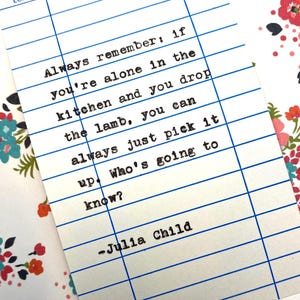 Always remember: if
you're alone in the
kitchen and you drop
the lamb, you can
always just pick it
up. Who's going to
know?
-Julia Child